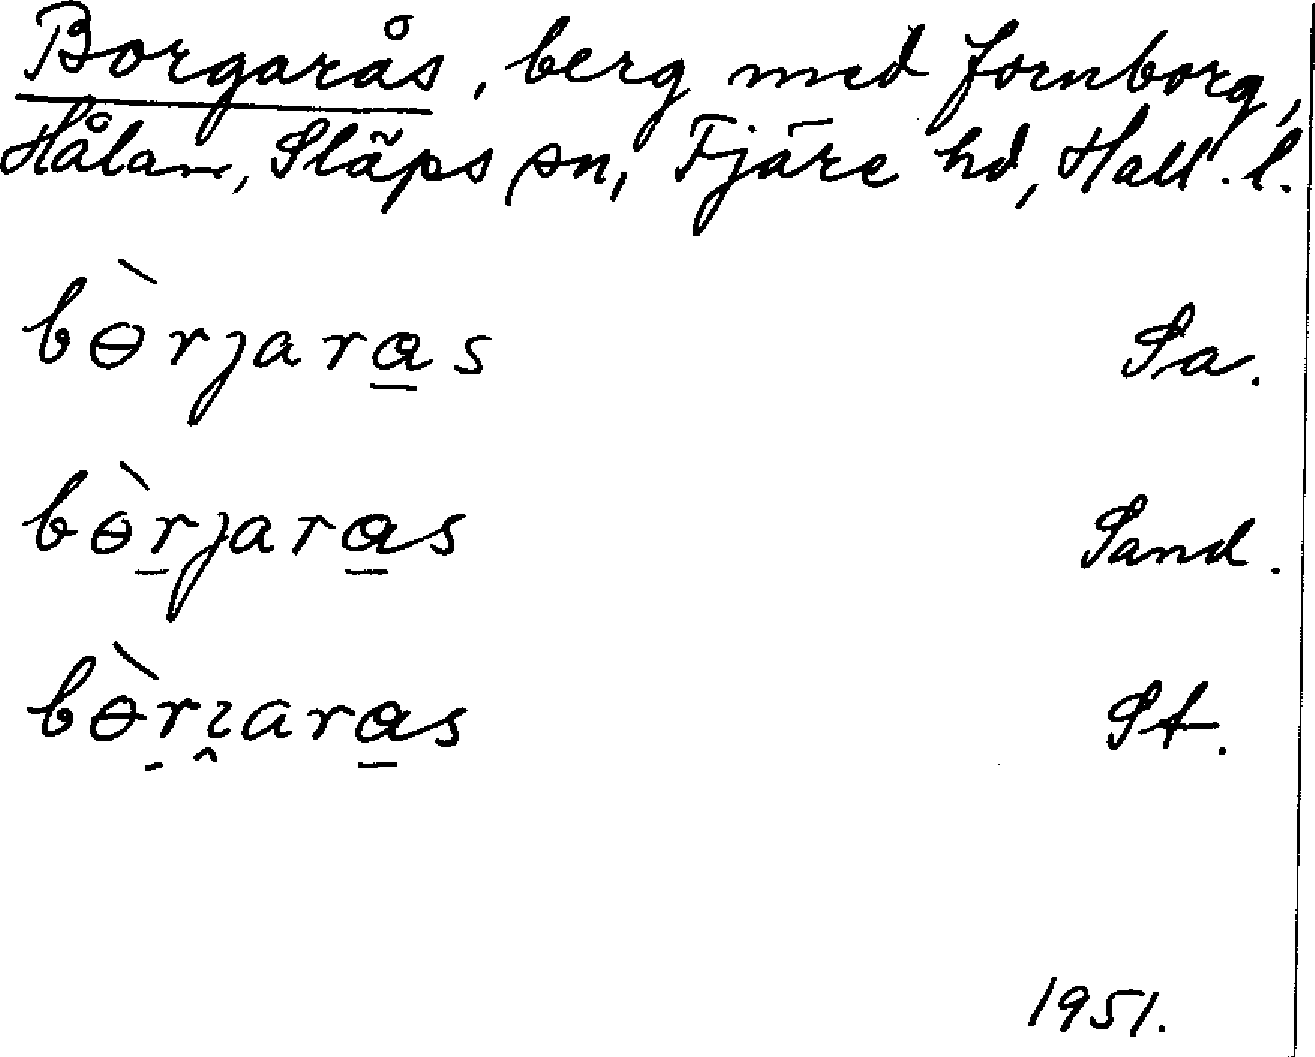 Borgarås, berg med fornborg,
Hålan, Släps sn, Fjäre hd, Hall. l.
bɵ̀rjara̱s Sa.
bɵ̀ṟjara̱s Sand.
bɵ̀ṟı̭ara̱s St.
1951.